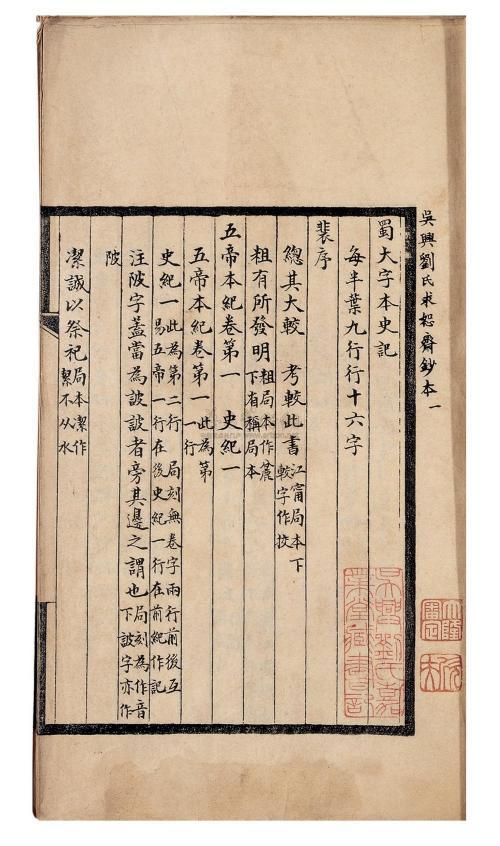 吳興劉氏求恕齋鈔本一
蜀大字本史記
每半葉九行行十六字
裴序
總其大較　考較此書江甯局本下較字作校
粗有所發明粗局本作麄下有稱局本
五帝本紀卷第一　史紀一
五帝本紀卷第一此為第一行
史紀一此為第二行　局刻無卷字兩行前後互易五帝一行在後史紀一行在前紀作記
注陂字蓋當為詖詖者旁其邊之謂也局刻為作音下詖字亦作
陂
潔誠以祭祀局本潔作絜不从水
吳興劉氏嘉業堂藏書印